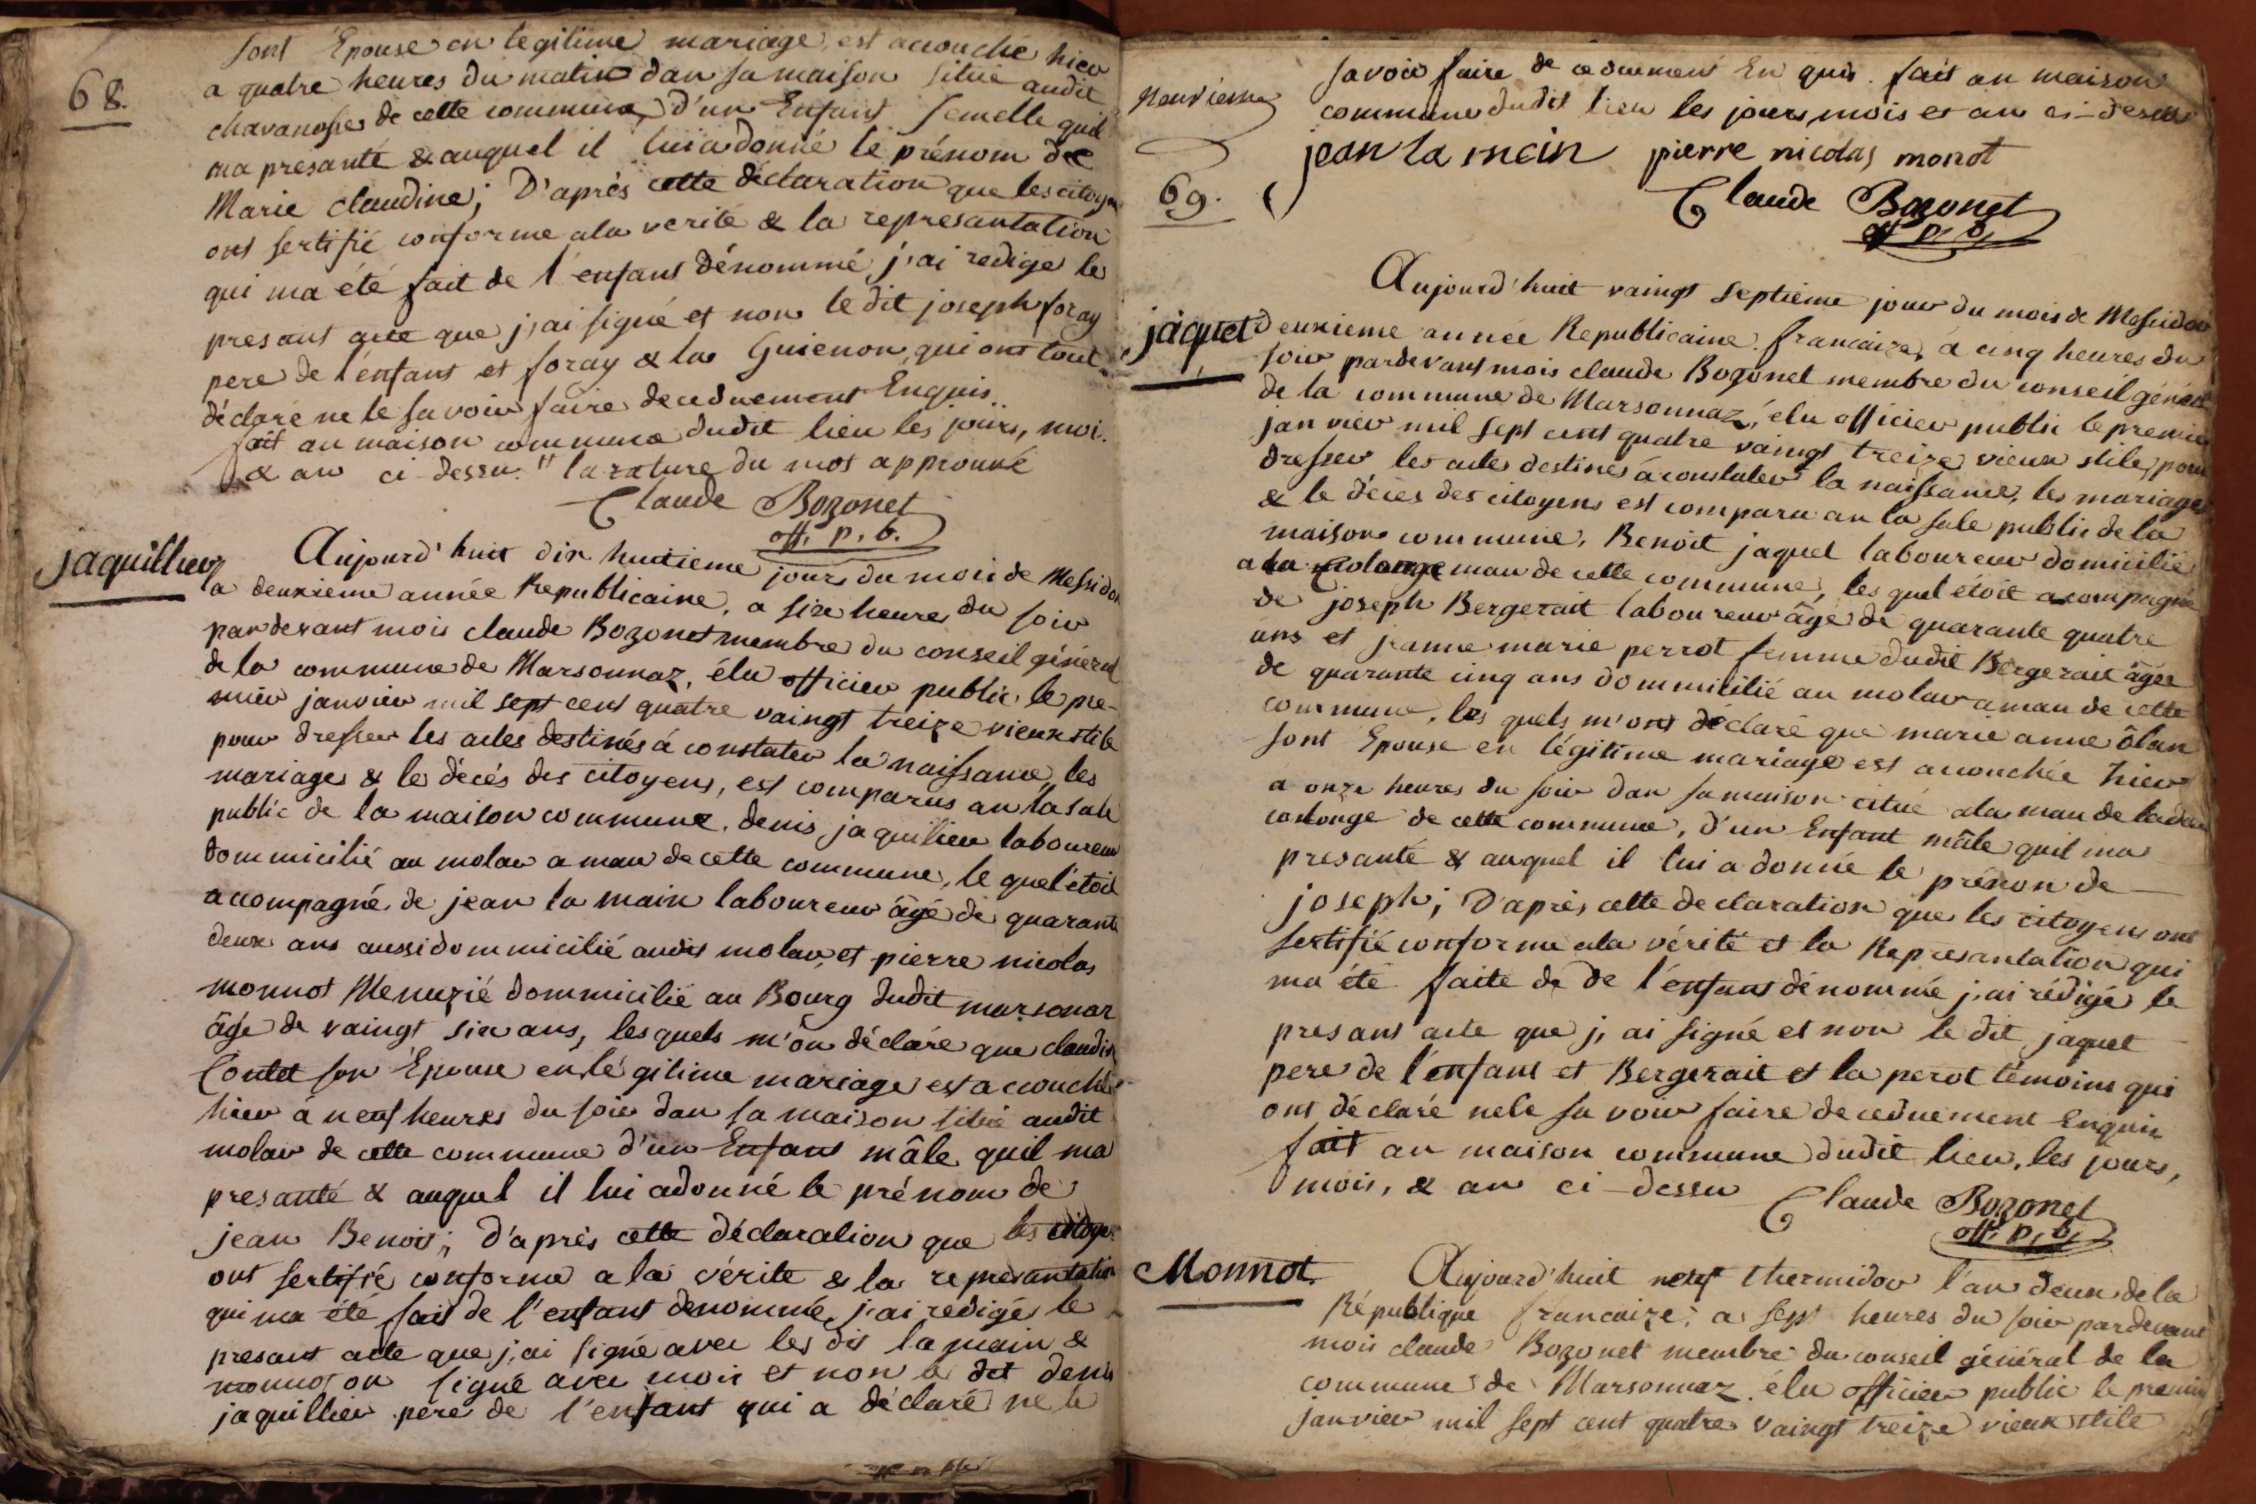 68.
sont Epouse en legitime mariage, est acouché hier
a quatre heures du matin dan sa maison situé audit
chavanosse de cette commune, d'un Enfant femelle quil
ma presanté & auquel il lui a donné le prénom de
Marie claudine; D'aprés cette déclaration que les citoyen
ont sertifié conforme ala verité & la represantation
qui ma été fait de l'enfant dénommé, j'ai redige le
presant acte que j,ai signé et non le dit joseph foray
pere de l'enfant et foray & la Guienon, qui ont tout
déclaré ne le savoir faire de ceduement Enquis.
fait an maison commune dudit lieu les jours, moi.
& an ci-dessu. " la rature du mot approuvé
Claude Bozonet
off. p. b.
jaquillier
Aujourd'huit dix huitieme jours du mois de Messidor
a deuxieme année Republicaine, a size heures du soir
pardevant mois claude Bozonet membre du conseil général
de la commune de Marsonnaz, élu officier public le pre-
mier janvier mil sept cent quatre vaingt treize vieux stile
pour dresser les actes destinés á constater la naissance, les
mariages & le décés des citoyens, est comparus an la sale
public de la maison commune, denis jaquilier laboureur
dommicilié au molar a man de cette commune, le quel étoit
accompagné de jean la main laboureur âgé de quarante
deux ans aussi dommicilié audit molar, et pierre nicolas
monnot Menuzié dommicilié au Bourg dudit marsonar
âgé de vaingt six ans, lesquels m'on déclaré que claudin
Contet son Epouse en légitime mariage est accouchée
hier á neuf heures du soir dan sa maison situé audit
molar de cette commune d'un Enfant mâle quil ma
presanté & auquel il lui a donné le prénom de
jean Benoit; d'aprés cette déclaration que les citoyen
ont sertifié conforme a la vérité & la représantation
qui ma été fait de l'enfant dénommé, j'ai redigé le
presant acte que j,ai signé avec les dis la main &
monnot on signé avec moi et non le dit denis
jaquillier pére de l'enfant qui a déclaré ne le
savoir faire de ceduement Enquis. fait an maison
commune dudit lieu les jours, mois et an ci-dessu
jean la main pierre nicolas monot
Claude Bozonet
off p, b,
69.
jaquet
Aujourd'huit vaingt septiéme jour du mois de Messidor
deuxieme année Republicaine francaize, á cinq heures du
soir pardevant mois claude Bozonet membre du conseil général
de la commune de Marsonnaz, élu officier public le premier
janvier mil sept cent quatre vaingt treize vieux stile, pour
dresser les actes destinés á constater la naissance, les mariages
& le décés des citoyens est comparu an la sale public de la
maison commune, Benoit jaquet laboureur domicilié
a la Colonge man de cette commune, les quel étoit acompagné
de joseph Bergerait laboureur âgé de quarante quatre
ans et jeanne marie perrot femme dudit Bergerait âgée
de quarante cinq ans dommicilié au molar a man de cette
commune, les quels m'ont déclaré que marie anne ôlan
sont Epouse en légitime mariage est acouchée hier
a onze heures du soir dan sa maison citué ala man de la
colonge de cette commune, d'un Enfant mâle quil ma
presanté & auquel il lui a donné le prénon de
joseph; D'aprés cette declaration que les citoyens ont
sertifié conforme ala vérité et la Represantation qui
ma été faite de de l'enfant dénommé j,ai rédigé le
presant acte que j, ai signé et non le dit jaquet
pere de l'enfant et Bergerait et la perot témoins qui
ont déclaré nele savoir faire de ceduement Enquis
fait an maison commune dudit lieu, les jours,
mois, & an ci-dessu
Claude Bozonet
off. p, b,
Monnot
Aujourd'huit neuf thermidor l'an deux de la
République francaize, a sept heures du soir pardevant
mois claude Bozonet membre du conseil général de la
commune de Marsonnaz élu officier public le premier
janvier mil sept cent quatre vaingt treize vieux stile